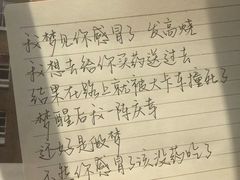 我梦见你感冒了 发高烧
我想去给你买药送过去
结果在路上就被大卡车撞死了
梦醒后我一阵庆幸
还好是做梦
不然你感冒了该没药吃了